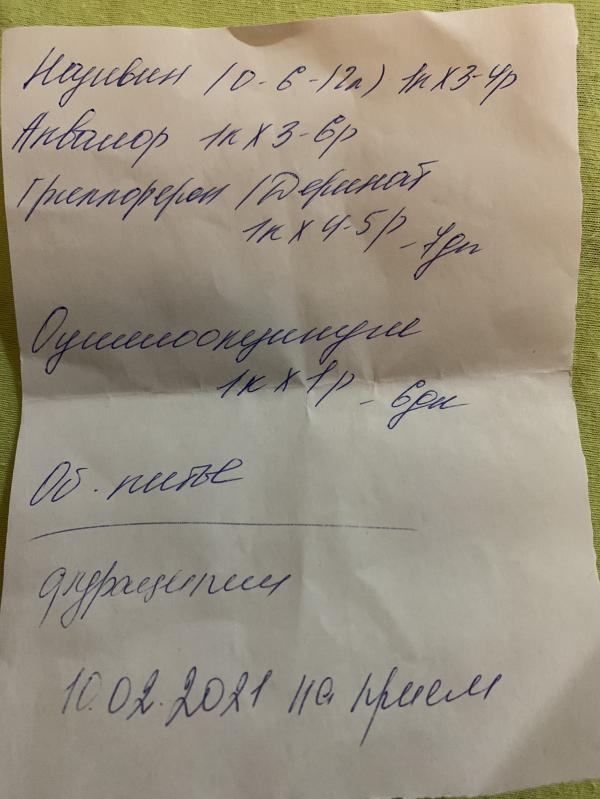 Називин (0-6-12л) 1к х 3-4р
Аквалор 1к х 3-6р
Гриппферон / Деринат
1к х 4-5р - 7дн
Оциллококцинум
1к х 1р - 6дн
Об. питье
фурацилин
10.02.2021 на прием